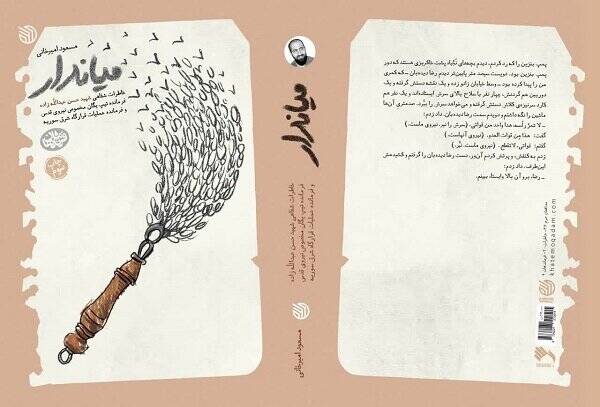 مسعود امیرخانی
میاندار
خاطرات شفاهی شهید حسن عبدالله‌زاده
فرمانده تیپ یگان مخصوص نیروی قدس
و فرمانده عملیات قرارگاه شرق سوریه
چاپ سوم
میاندار
خاطرات شفاهی شهید حسن عبدالله‌زاده
فرمانده تیپ یگان مخصوص نیروی قدس
و فرمانده عملیات قرارگاه شرق سوریه
مسعود امیرخانی
پمپ بنزین را که رد کردم، دیدم بچه‌های نُکَباء پشت خاکریزی هستند که دور
پمپ بنزین بود. دویست سیصد متر پایین‌تر دیدم رضا دیده‌بان ـ که کمری
من را پیدا کرده بود ـ وسط خیابان زانو زده و یک نقشه دستش گرفته و یک
دوربین هم گردنش. چهار نفر با سلاح بالای سرش ایستاده‌اند و یک نفر هم
کارد سرنیزه‌ی کلاش دستش گرفته و می‌خواهد سرش را ببُرد. صدمتری آن‌ها
ماشین را نگه داشتم و دویدم سمت رضا دیده‌بان. داد زدم:
ـ لا تمزّ رأسه، هذا واحد من قواتی. (سرش را نبر، نیروی ماست.)
گفت: هذا من قوات العدو. (نیروی آنهاست.)
گفتم: قواتی، لا تقطع. (نیروی ماست. نبُر.)
زدم به کتفش، و پرتش کردم آن‌ور. دست رضا دیده‌بان را گرفتم و کشیدمش
این‌طرف. داد زدم:
ـ رضا، برو آن بالا وایستا، ببینم.
khatemoqadam.com